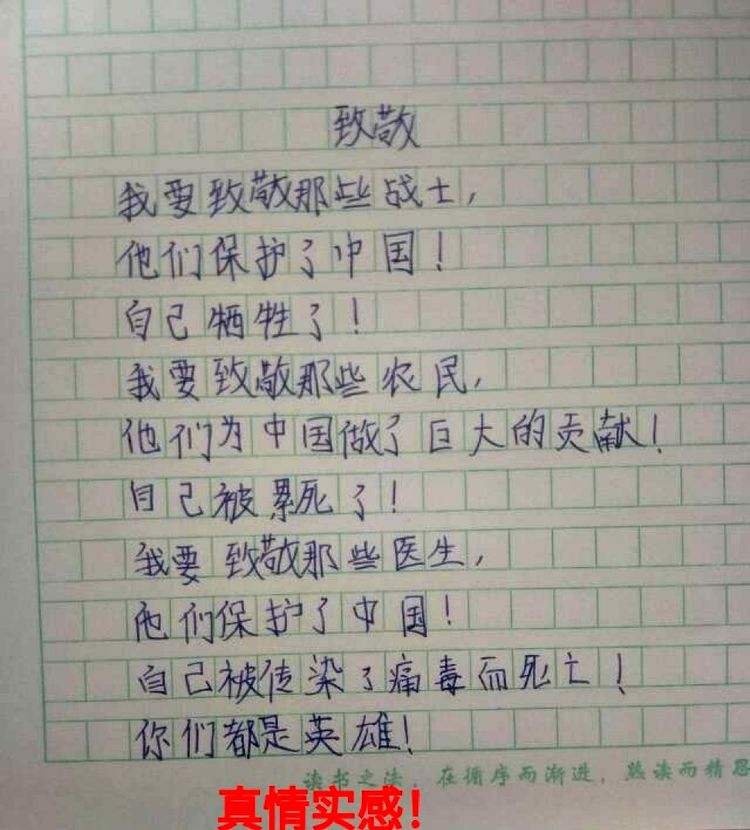 致敬
我要致敬那些战士，
他们保护了中国！
自己牺牲了！
我要致敬那些农民，
他们为中国做了巨大的贡献！
自己被累死了！
我要致敬那些医生，
他们保护了中国！
自己被传染了痛毒而死亡！
你们都是英雄！
读书之法，在循序而渐进，熟读而精思
真情实感！